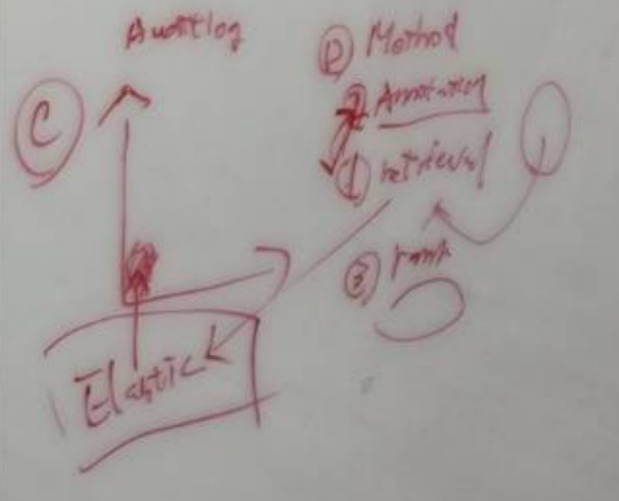 Auditlog
C
① Method
2 Annotation
① retrieval
③ rank
Elastic